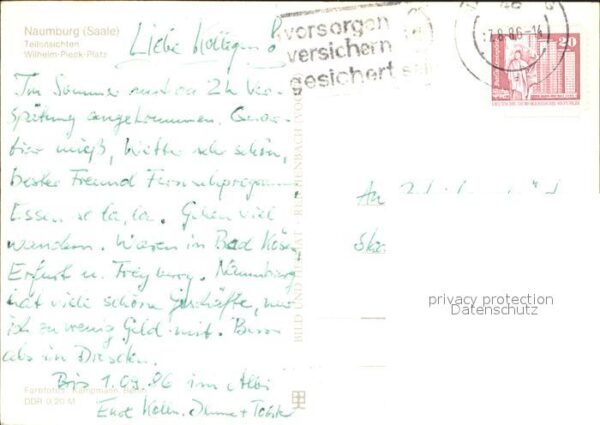 Naumburg (Saale)
Teilansichten
Wilhelm-Pieck-Platz
Liebe Kollegen!
vorsorgen
versichern
gesichert sein
7.8.86-14
20
DEUTSCHE DEMOKRATISCHE REPUBLIK
Im Sommer mit 2h Ver-
spätung angekommen. Quar-
tier mieß, Wetter sehr schön,
bester Freund Fernsehprogramm,
Essen so la, la. Gehen viel
wandern. Waren in Bad Kösen,
Erfurt u. Freyburg. Naumburg
hat viele schöne Geschäfte, nur
ich zu wenig Geld mit. Besser
als in Dresden.
Bis 1.09.86 im Albi
Eure Kolln.
An
BILD UND HEIMAT REICHENBACH (VOGTL)
privacy protection
Datenschutz
Farbfotos: Kampmann, Berlin
DDR 0,20 M